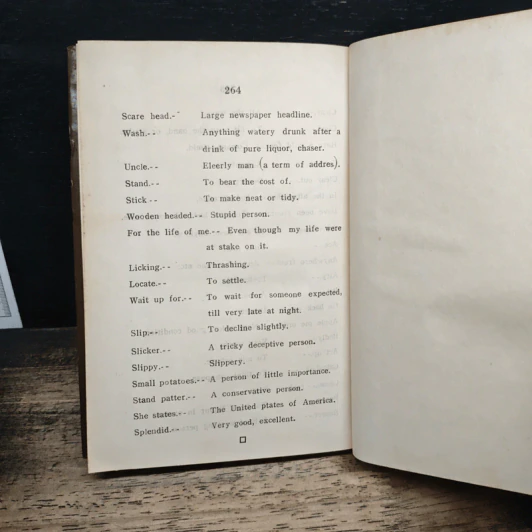 264
Scare head.-- Large newspaper headline.
Wash.-- Anything watery drunk after a
drink of pure liquor, chaser.
Uncle.-- Eleerly man (a term of addres).
Stand.-- To bear the cost of.
Stick-- To make neat or tidy.
Wooden headed.-- Stupid person.
For the life of me.-- Even though my life were
at stake on it.
Licking.-- Thrashing.
Locate.-- To settle.
Wait up for.-- To wait for someone expected,
till very late at night.
Slip.-- To decline slightly.
Slicker.-- A tricky deceptive person.
Slippy.-- Slippery.
Small potatoes.-- A person of little importance.
Stand patter.-- A conservative person.
She states.-- The United plates of America.
Splendid.-- Very good, excellent.